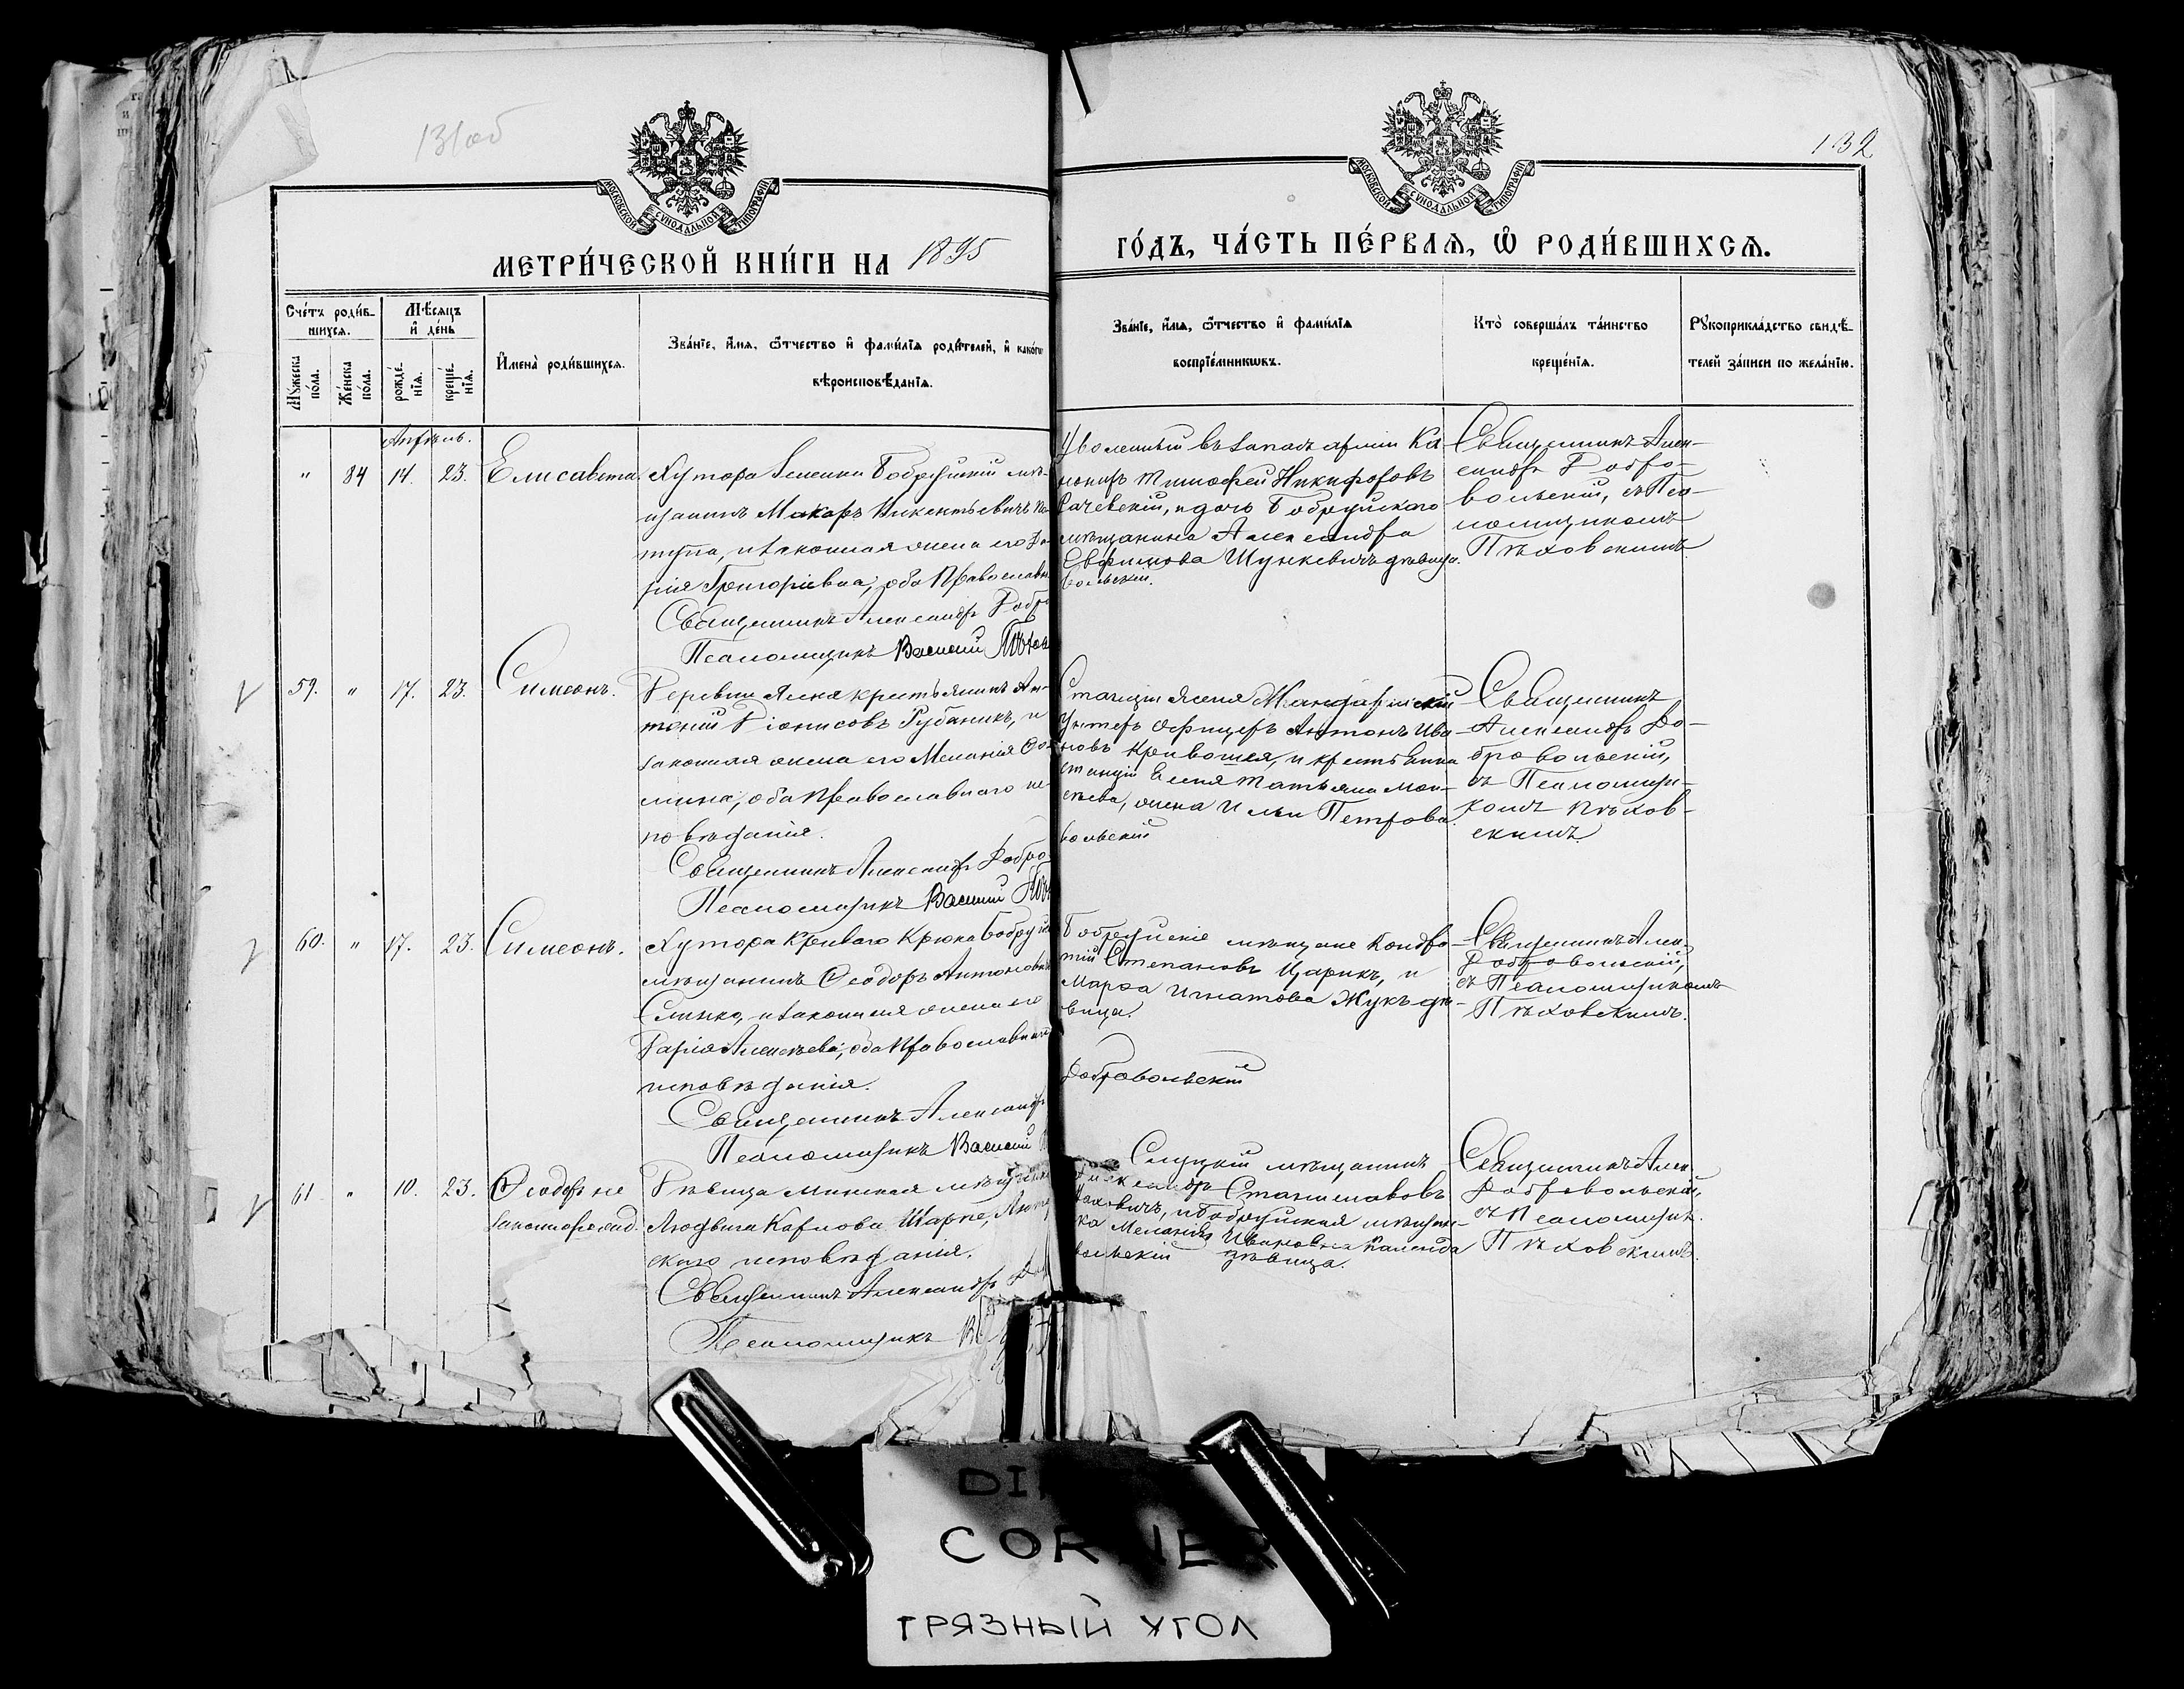 131об
132
МОСКОВСКОЙ СУНОДАЛЬНОЙ ТИПОГРАФІИ
МОСКОВСКОЙ СУНОДАЛЬНОЙ ТИПОГРАФІИ
МЕТРИ́ЧЕСКОЙ КНИ́ГИ НА 1895
ГО́ДЪ, ЧА́СТЬ ПЕ́РВАѦ, Ѽ РОДИ́ВШИХСѦ.
Сче́тъ роди́в-
шихся.
Мѣ́сяцъ
и҆ де́нь
Му́жеска
по́ла.
Же́нска
по́ла.
рожде́-
нїѧ.
креще́-
нїѧ.
И҆мена̀ роди́вшихсѧ.
Зва́нїе, и҆́мѧ, ѻ҆́тчество и҆ фами́лїѧ роди́телей, и҆ како́гѡ
вѣроисповѣ́данїѧ.
Зва́нїе, и҆́мѧ, ѻ҆́тчество и҆ фами́лїѧ
воспрїе́мникѡвъ.
Кто̀ соверша́лъ та́инство
креще́нїѧ.
Рꙋкоприкла́дство свидѣ́-
телей за́писи по жела́нїю.
Апрѣль.
" 84 14. 23. Елисавета.
Хутора Бобруйскій мѣ-
щанинъ Макаръ Викентьевичъ
и законная жена его Да-
рія Григоріевна, оба Православн
Священникъ Александръ Добро
Псаломщикъ Василій Пѣхов
Уволенный въ запасъ арміи Ка-
нониръ Тимофей Никифоровъ
и дочь Бобруйскаго
мѣщанина Александра
Евфимова Шункевичъ дѣвица.
вольскій.
Священникъ Алек-
сандръ Добро-
вольскій, съ Пса-
ломщикомъ
Пѣховскимъ
59. " 17. 23. Симеонъ.
Деревни Ясена крестьянинъ Ан-
тоній Діонисовъ Рубаникъ, и
законная жена его Меланія Ѳо-
мина, оба Православнаго ис-
повѣданія.
Священникъ Александръ Добро-
Псаломщикъ Василій Пѣх
Станціи Ясеня Жандармскій
Унтеръ Офицеръ Антонъ Ива-
новъ Кривошея, и крестьянка
станціи Ясеня Татьяна Мои-
сеева, жена Ильи Петрова.
вольскій
Священникъ
Александръ До-
бровольскій,
съ Псаломщи-
комъ Пѣхов-
скимъ.
60. " 17. 23. Симеонъ.
Хутора Криваго Крюка Бобруйс
мѣщанинъ Ѳеодоръ Антоновъ
и законная жена его
Дарія Алексѣева, оба Православнаго
исповѣданія.
Священникъ Александръ
Псаломщикъ Василій
Бобруйскіе мѣщане Кондра-
тій Степановъ Царикъ, и
Марѳа Игнатова Жукъ дѣ-
вица.
Добровольскій
Священникъ Алек.
Добровольскій,
съ Псаломщикомъ
Пѣховскимъ.
61 " 10. 23. Ѳеодоръ не
законнорожд.
Дѣвица Минская мѣщанка
Людвига Карлова Шарпе, Люте
скаго исповѣданія.
Священникъ Александръ Доб
Псаломщикъ В
Слуцкій мѣщанинъ
Александръ Станиславовъ
и Бобруйская мѣщан-
ка Меланія Ивановна Календа
вольскій дѣвица.
Священникъ Алек.
Добровольскій,
съ Псаломщик.
Пѣховскимъ.
DI
CORNER
ГРЯЗНЫЙ УГОЛ